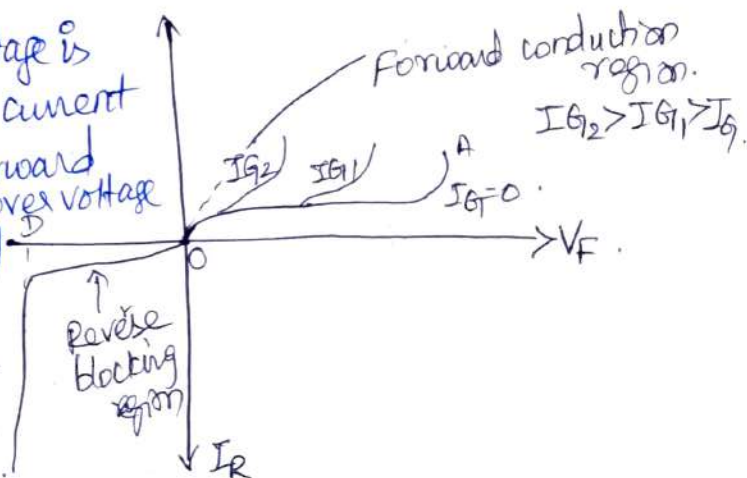 age is
current
rward
over voltage
Forward conduction
region.
IG2>IG1>IG
IG2
IG1
A
IG=0.
D
O
>VF.
Reverse
blocking
region
IR